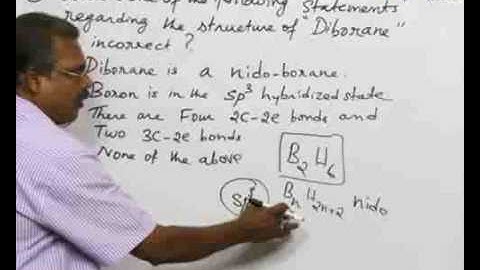 of the following Statements
regarding the structure of "Diborane"
incorrect ?
Diborane is a nido-borane.
Boron is in the Sp3 hybridized state
There are Four 2C-2e bonds and
Two 3C-2e bonds
None of the above
B2H6
BnH2n+2 nido